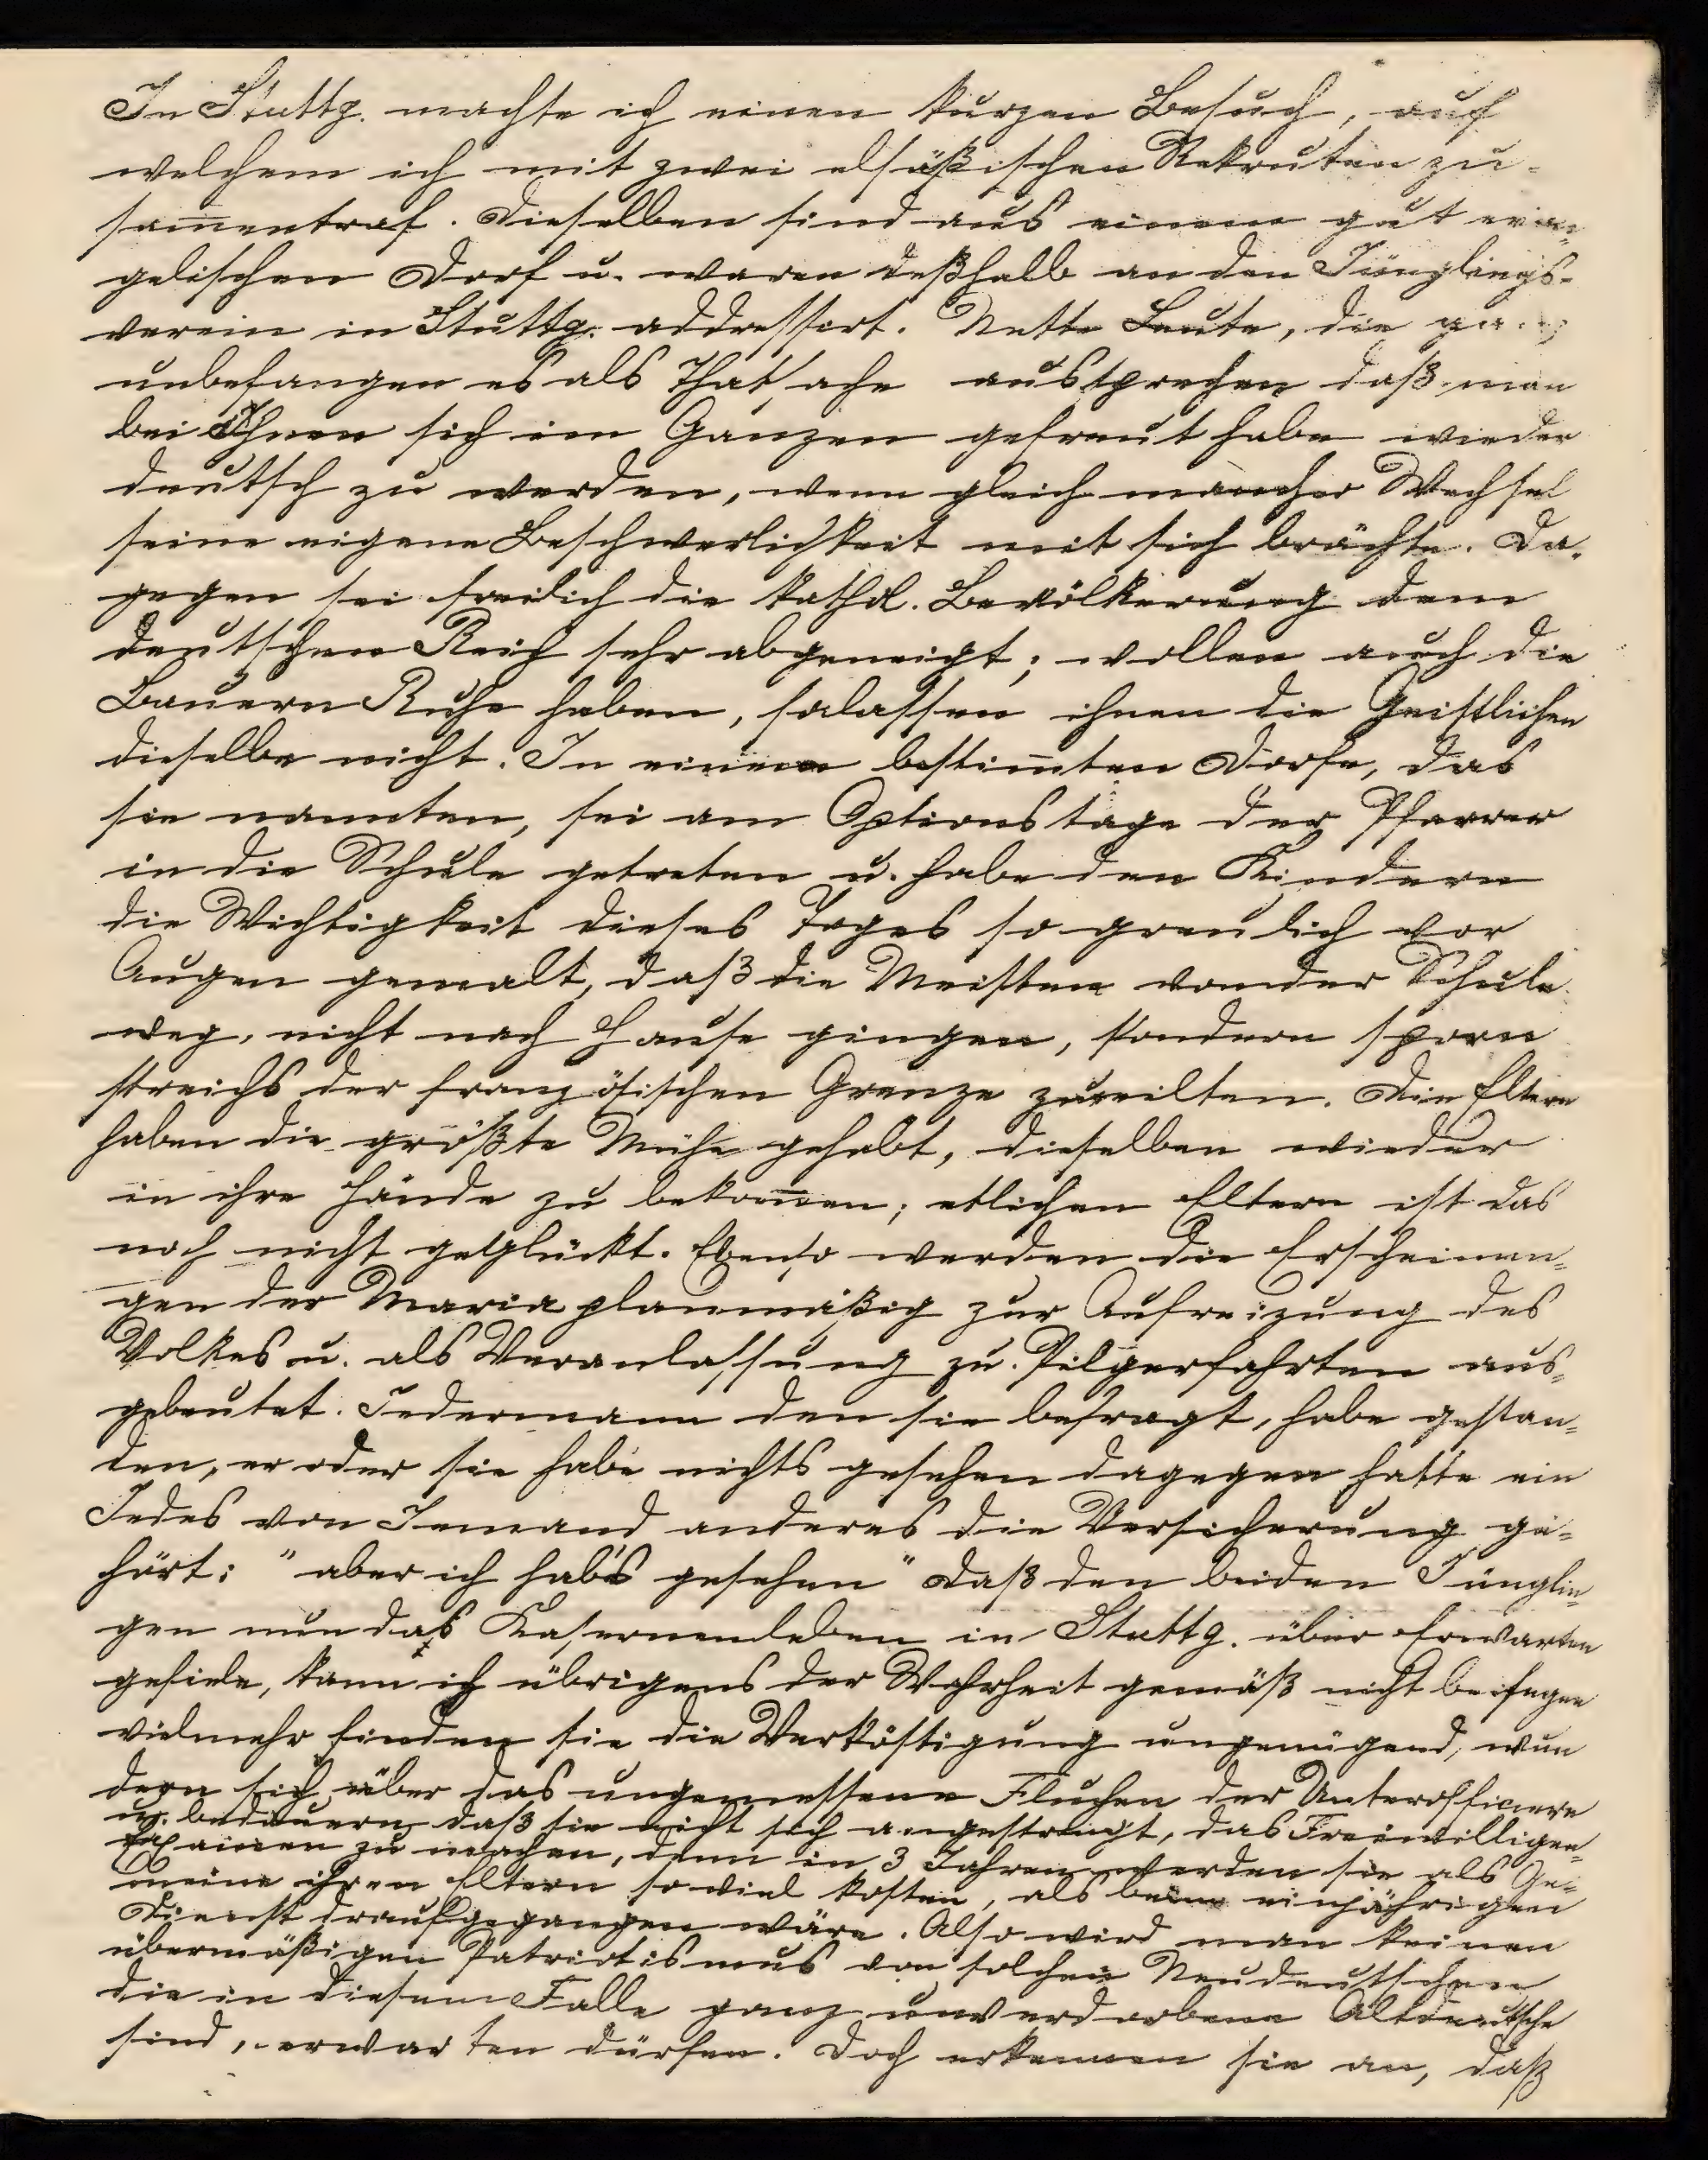 In Stuttg. machte ich einen kurzen Besuch, auf
welchem ich mit zwei elsäßischen Rekruten zu-
sam̅entraf. Dieselben sind aus einem gut evan-
gelischen Dorf u. waren deßhalb an den Jünglings-
verein in Stuttg. addressirt. Nette Leute, die ganz
unbefangen es als Thatsache aussprechen daß man
bei Ihnen sich im Ganzen gefreut habe wieder
deutsch zu werden, wenn gleich mancher Wechsel
seine eigene Beschwerlichkeit mit sich brächte. Da-
gegen sei freilich die kathol. Bevölkerung dem
deutschen Reich sehr abgeneigt; wollen auch die
Bauern Ruhe haben, so lassen ihnen die Geistlichen
dieselbe nicht. In einem bestim̅ten Dorfe, das
sie nannten, sei am Optionstage der Pfarrer
in die Schule getreten u. habe den Kindern
die Wichtigkeit dieses Tages so greulich vor
Augen gemalt, daß die Meisten von der Schule
weg, nicht nach Hause gingen, sondern sporn
streichs der französischen Grenze zueilten. Die Eltern
haben die größte Mühe gehabt, dieselben wieder
in ihre Hände zu bekom̅en; etlichen Eltern ist das
noch nicht geglückt. Ebenso werden die Erscheinun-
gen der Maria planmäßig zur Aufreizung des
Volkes u. als Veranlassung zu Pilgerfahrten aus-
gebeutet. Jedermann den sie befragt, habe gestan-
den, er oder sie habe nichts gesehen dagegen hatte ein
Jedes von Jemand anderes die Versicherung ge-
hört: "aber ich hab's gesehen" Daß den beiden Jünglin-
gen nun das Kasernenleben in Stuttg. über Erwarten
gefiele, kann ich übrigens der Wahrheit gemäß nicht beifügen
vielmehr finden sie die Verköstigung ungenügend, wun
dern sich über das ungemessene Fluchen der Unterofficiere
u. bedauern daß sie nicht sich angestrengt, das Freiwilligen-
Examen zu machen, denn in 3 Jahren werden sie als Ge-
meine ihren Eltern so viel kosten, als beim einjährigen
Dienst draufgegangen wäre. Also wird man keinen
übermäßigen Patriotismus von solchen Neudeutschen
die in diesem Falle ganz unverdorbene Altdeutsche
sind, erwarten dürfen. Doch erkennen sie an, daß